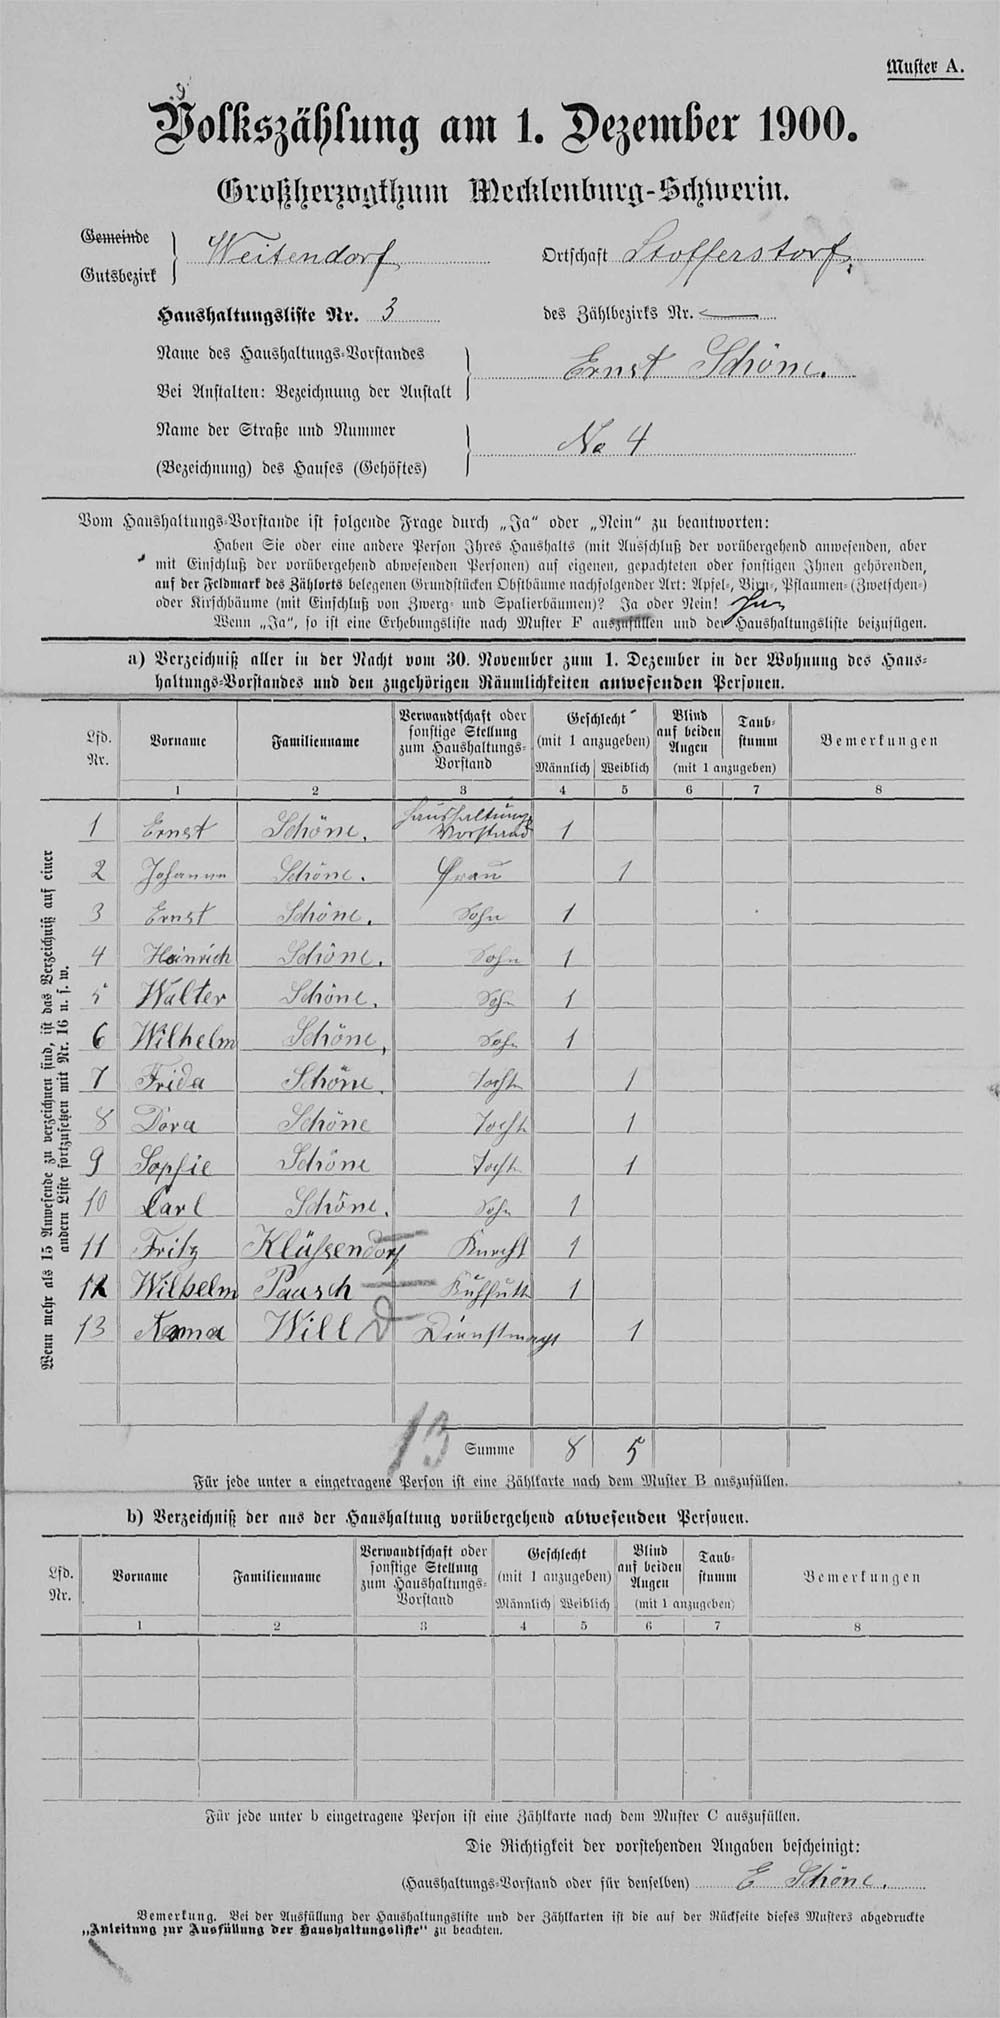 Muster A.
Volkszählung am 1. Dezember 1900.
Großherzogthum Mecklenburg-Schwerin.
Gemeinde
Gutsbezirk
Weitendorf
Ortschaft Stofferstorf.
Haushaltungsliste Nr. 3
des Zählbezirks Nr. —
Name des Haushaltungs-Vorstandes
Bei Anstalten: Bezeichnung der Anstalt
Ernst Schöne.
Name der Straße und Nummer
(Bezeichnung) des Hauses (Gehöftes)
No 4
Vom Haushaltungs-Vorstande ist folgende Frage durch „Ja“ oder „Nein“ zu beantworten:
Haben Sie oder eine andere Person Ihres Haushalts (mit Ausschluß der vorübergehend anwesenden, aber
mit Einschluß der vorübergehend abwesenden Personen) auf eigenen, gepachteten oder sonstigen Ihnen gehörenden,
auf der Feldmark des Zählorts belegenen Grundstücken Obstbäume nachfolgender Art: Apfel-, Birn-, Pflaumen- (Zwetschen-)
oder Kirschbäume (mit Einschluß von Zwerg- und Spalierbäumen)? Ja oder Nein! Ja
Wenn „Ja“, so ist eine Erhebungsliste nach Muster F auszufüllen und der Haushaltungsliste beizufügen.
a) Verzeichniß aller in der Nacht vom 30. November zum 1. Dezember in der Wohnung des Haus-
haltungs-Vorstandes und den zugehörigen Räumlichkeiten anwesenden Personen.
Lfd. Nr. Vorname Familienname Verwandtschaft oder sonstige Stellung zum Haushaltungs-Vorstand Geschlecht (mit 1 anzugeben) Männlich Weiblich Blind auf beiden Augen Taub-stumm (mit 1 anzugeben) Bemerkungen
1 2 3 4 5 6 7 8
1 Ernst Schöne. Haushaltungs Vorstand 1
2 Johanna Schöne. Frau 1
3 Ernst Schöne. Sohn 1
4 Heinrich Schöne. Sohn 1
5 Walter Schöne. Sohn 1
6 Wilhelm Schöne. Sohn 1
7 Frida Schöne. Tocht 1
8 Dora Schöne Tocht 1
9 Sophie Schöne Tocht 1
10 Carl Schöne. Sohn 1
11 Fritz Klüssendorf Knecht 1
12 Wilhelm Paasch 1
13 Will Dienstmagd 1
Wenn mehr als 15 Anwesende zu verzeichnen sind, ist das Verzeichniß auf einer
andern Liste fortzusetzen mit Nr. 16 u. s. w.
13 Summe 8 5
Für jede unter a eingetragene Person ist eine Zählkarte nach dem Muster B auszufüllen.
b) Verzeichniß der aus der Haushaltung vorübergehend abwesenden Personen.
Lfd. Nr. Vorname Familienname Verwandtschaft oder sonstige Stellung zum Haushaltungs-Vorstand Geschlecht (mit 1 anzugeben) Männlich Weiblich Blind auf beiden Augen Taub-stumm (mit 1 anzugeben) Bemerkungen
1 2 3 4 5 6 7 8
Für jede unter b eingetragene Person ist eine Zählkarte nach dem Muster C auszufüllen.
Die Richtigkeit der vorstehenden Angaben bescheinigt:
(Haushaltungs-Vorstand oder für denselben) E Schöne.
Bemerkung. Bei der Ausfüllung der Haushaltungsliste und der Zählkarten ist die auf der Rückseite dieses Musters abgedruckte
„Anleitung zur Ausfüllung der Haushaltungsliste“ zu beachten.